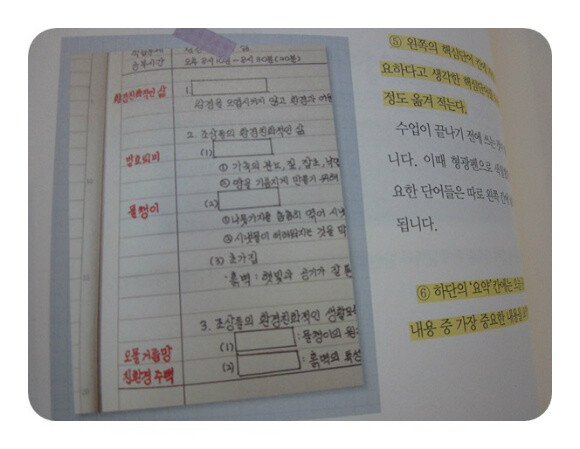 오후 8시 10분~8시 30분(20분)
환경친화적인 삶
1.
환경을 오염시키지 않고 환경과 어울
2. 조상들의 환경친화적인 삶
발효퇴비
(1)
① 가축의 분뇨, 짚, 잡초, 낙엽
② 땅을 기름지게 만들기
물챙이
(2)
① 나뭇가지를 촘촘히 엮어 시냇
② 시냇물이 더러워지는 것을 막
(3) 초가집
흙벽 : 햇빛과 공기가 잘 통
3. 조상들의 환경친화적인 생활모
오물거름망
(1) : 물챙이의 원
친환경 주택
(2) : 흙벽의 특성
⑤ 왼쪽의 핵심단어 칸에
요하다고 생각한 핵심단어를
정도 옮겨 적는다.
수업이 끝나기 전에 쓰는
니다. 이때 형광펜으로
요한 단어들은 따로 왼쪽 칸에
됩니다.
⑥ 하단의 '요약' 칸에는
내용 중 가장 중요한 내용을